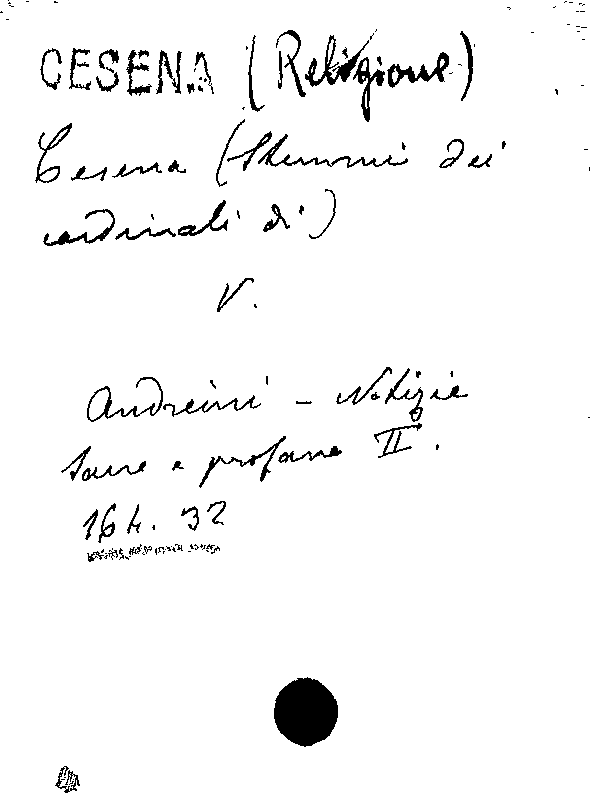 CESENA (Religione)
Cesena (Stemmi dei
cardinali di)
V.
Andreini - Notizie
sacre e profane II°.
164. 32